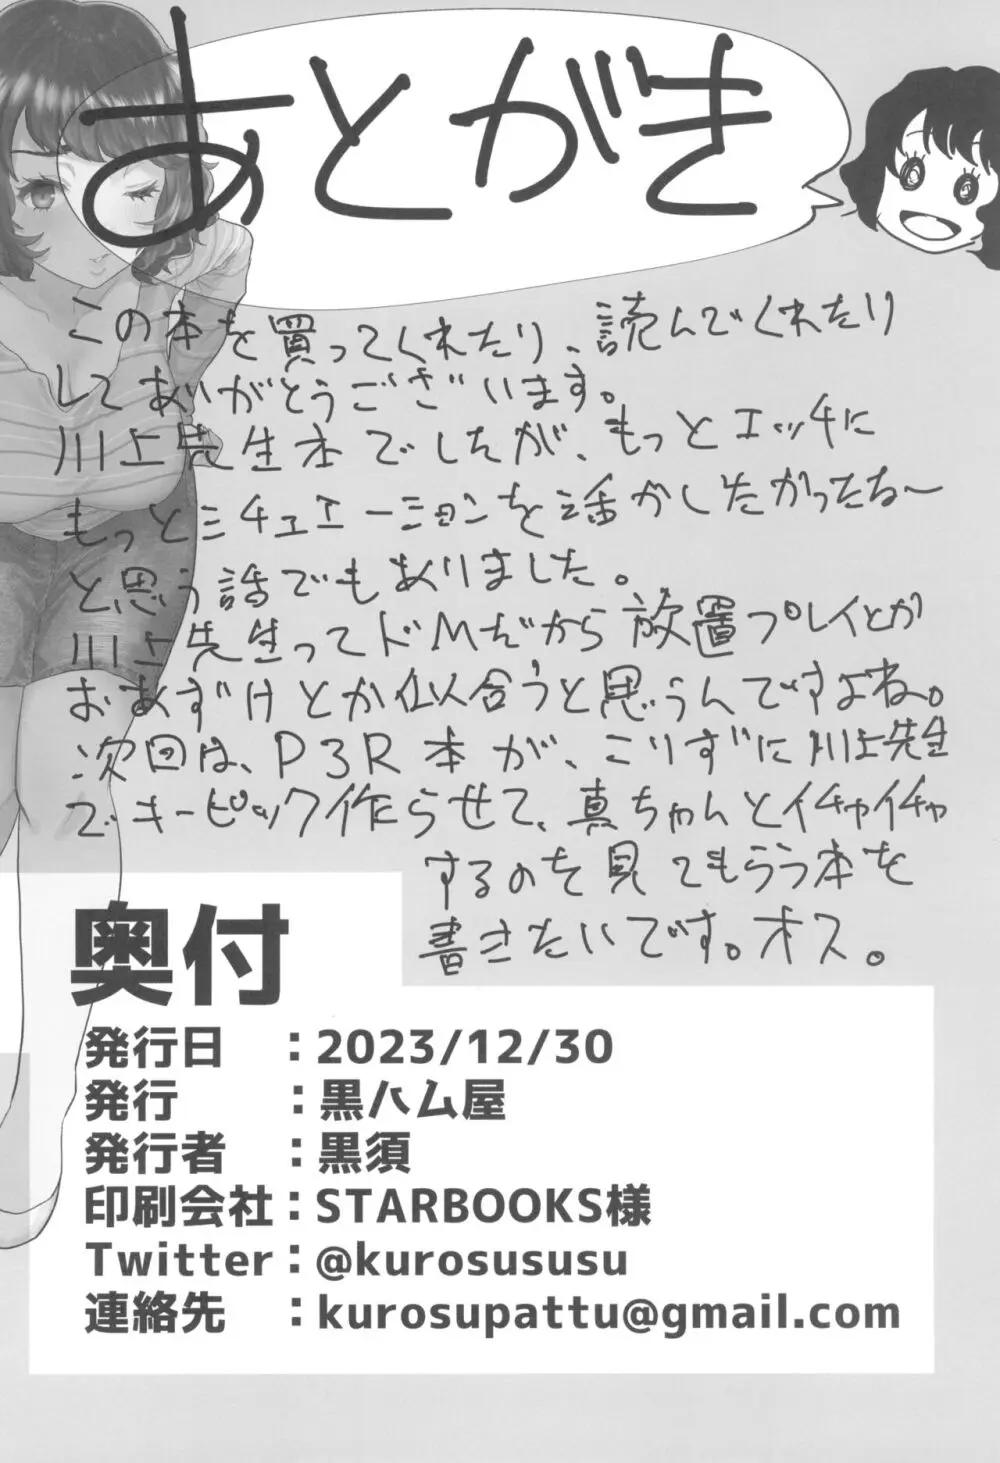 あとがき
この本を買ってくれたり、読んでくれたり
してありがとうございます。
川上先生本でしたが、もっとエッチに
もっとシチュエーションを活かしたかったな〜
と思う話でもありました。
川上先生ってドMだから放置プレイとか
おあずけとか似合うと思うんですよね。
次回は、P3R本が、こりずに川上先生
でキーピック作らせて、真ちゃんとイチャイチャ
するのを見てもらう本を
書きたいです。オス。
奥付
発行日 :2023/12/30
発行 :黒ハム屋
発行者 :黒須
印刷会社:STARBOOKS様
Twitter:@kurosususu
連絡先 :kurosupattu@gmail.com